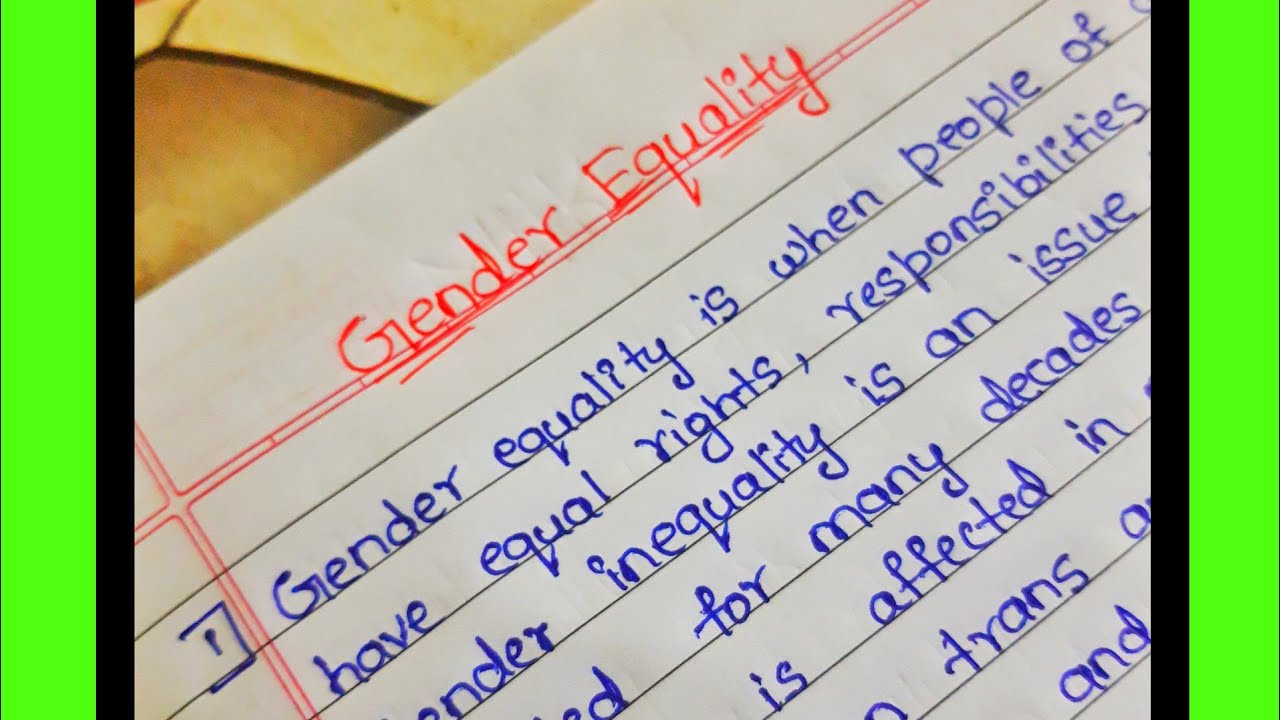 Gender Equality
1] Gender equality is when people of
have equal rights, responsibilities
inequality is an issue
for many decades
is affected in
trans
and